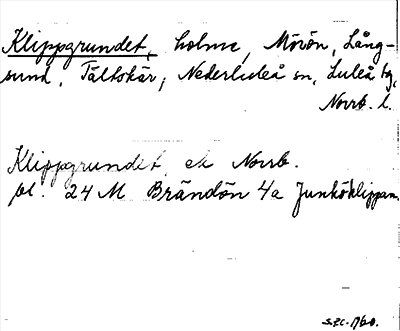 Klippgrundet, holme, Mörön, Lång-
sund, Tältskär, Nederluleå sn, Luleå tg,
Norrb. l.
Klippgrundet ek Norrb.
bl. 24 M Brändön 4a Junköklippan.